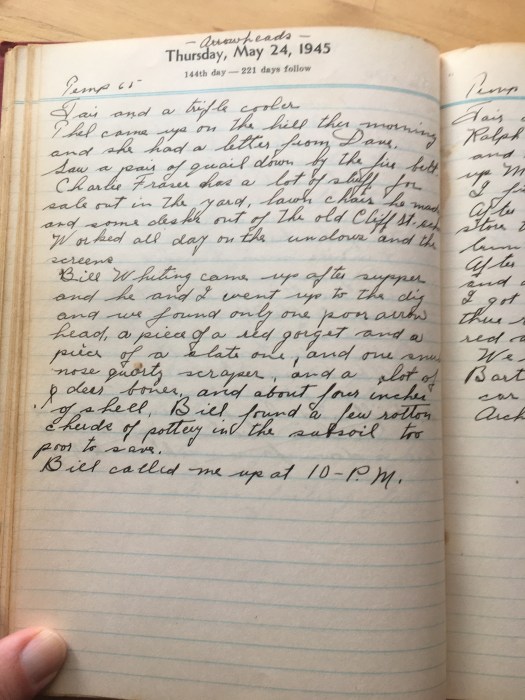 - Arrowheads -
Thursday, May 24, 1945
144th day — 221 days follow
Temp 65
Fair and a trifle cooler
Phel came up on the hill this morning
and she had a letter from Dave.
Saw a pair of quail down by the fire belt
Charlie Fraser has a lot of stuff for
sale out in the yard, lawn chair he made
and some desks out of the old Cliff St.
Worked all day on the windows and the
screens
Bill Whiting came up after supper
and he and I went up to the dig
and we found only one poor arrow
head, a piece of a red gorget and a
piece of a slate one, and one
nose quartz scraper, and a lot of
deer bones, and about four inches
of shell, Bill found a few rotton
sherds of pottery in the subsoil too
poor to save.
Bill called me up at 10-P.M.
Temp
Fair
Ralph
and
up
I
After
store
After
and
I got
three
red
We
Bart
car